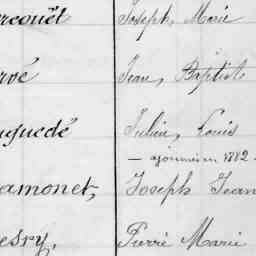 rcouët Joseph, Marie
rvé Jean, Baptiste
uguedé Julien, Louis
— ajourné en 1882 —
amonet, Joseph Jean
esry, Pierre Marie